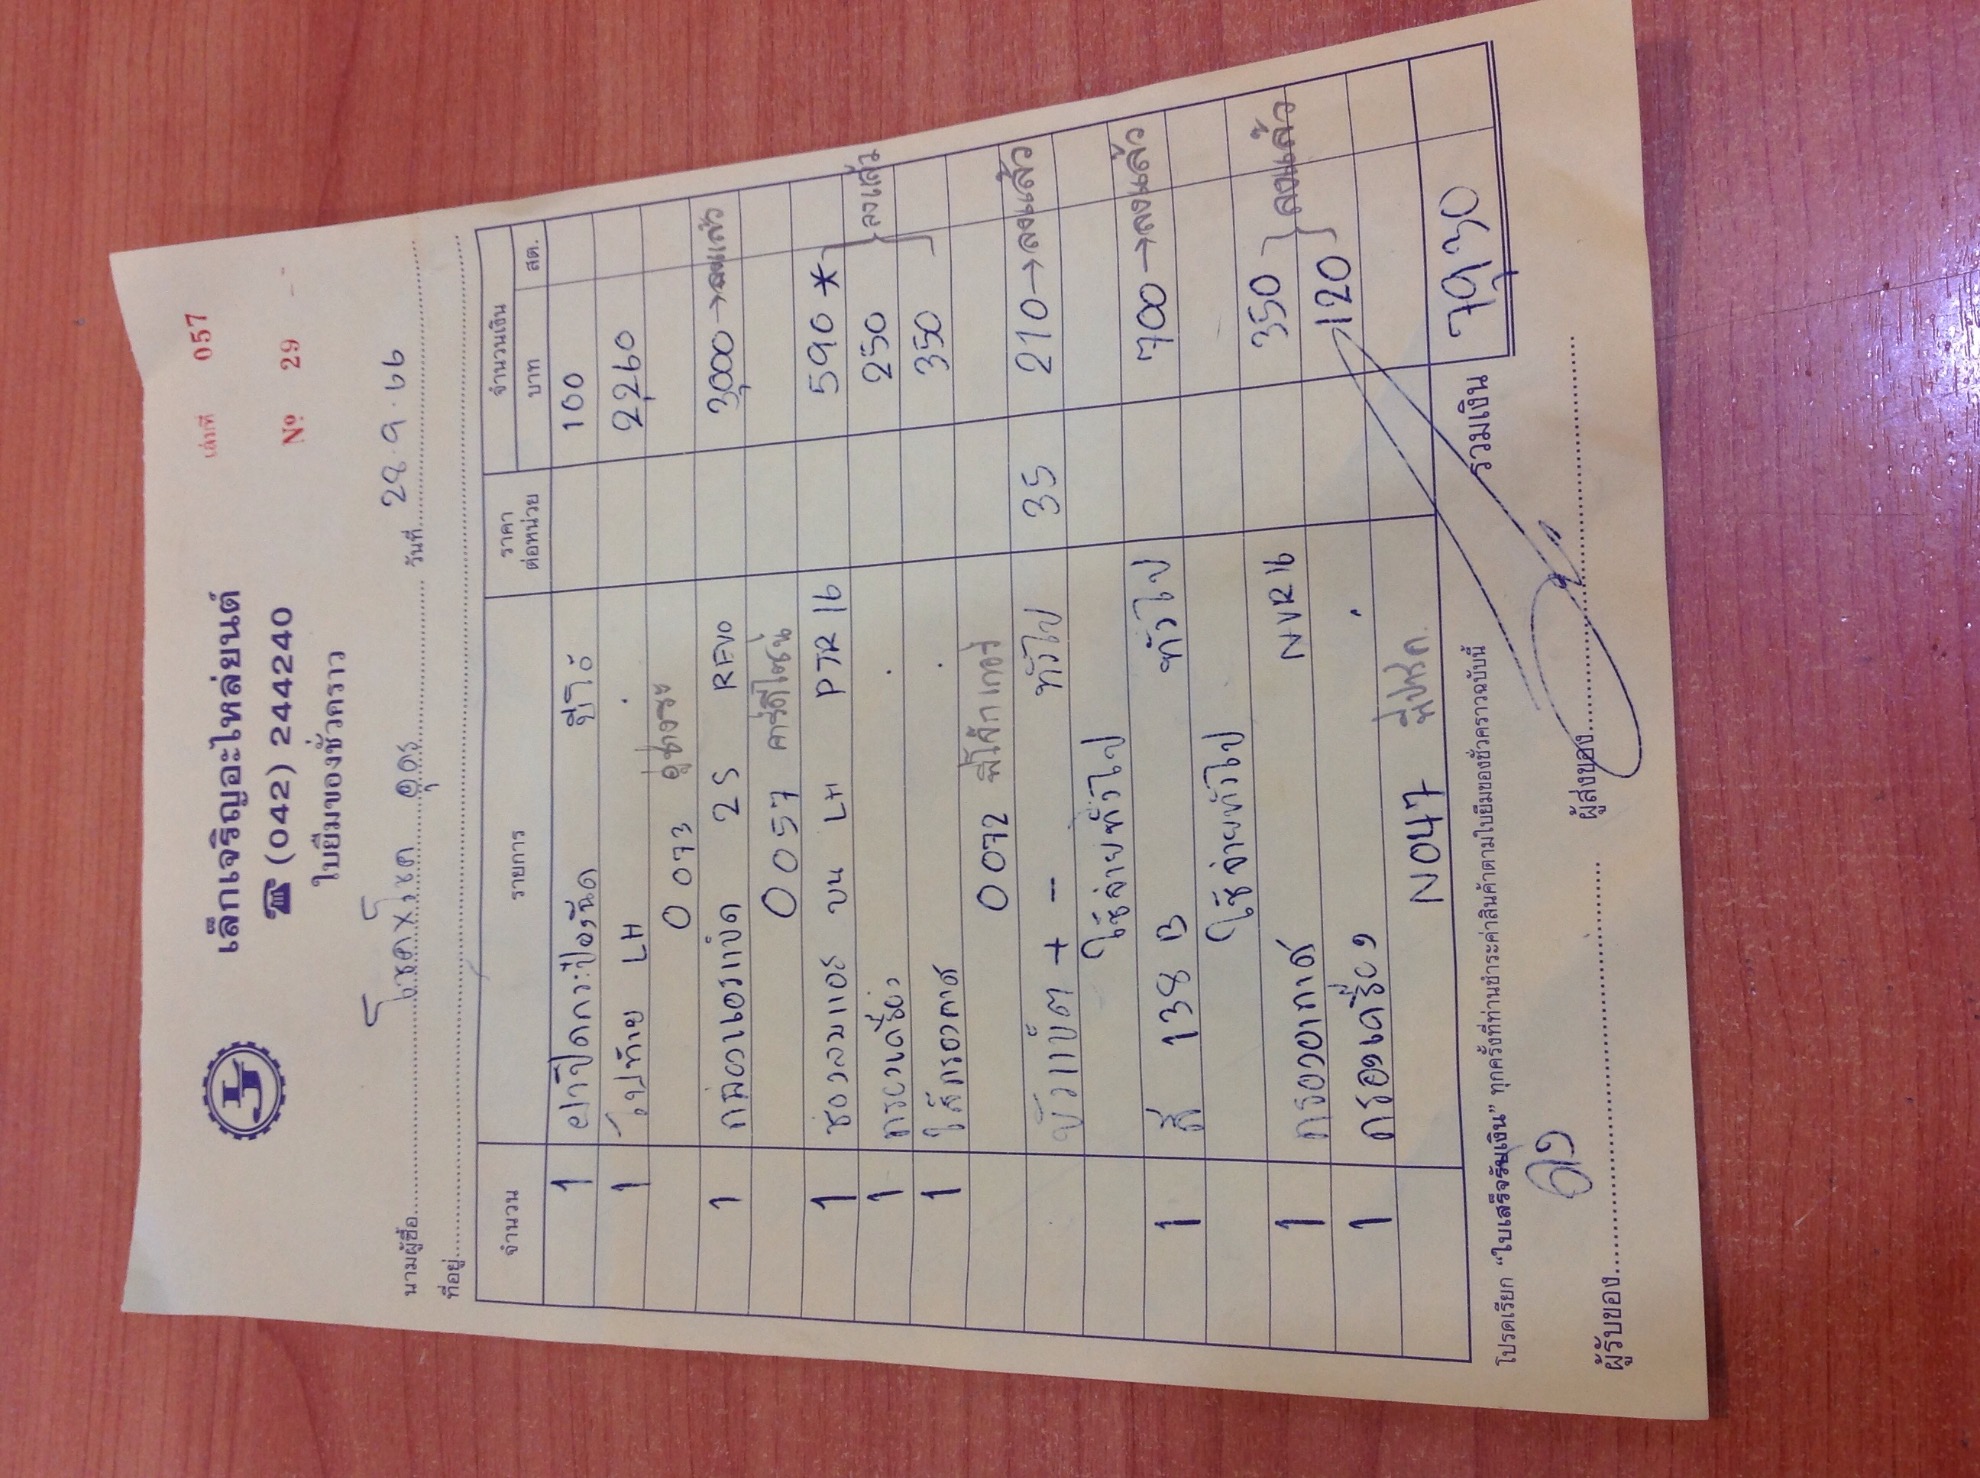 เล็กเจริญอะไหล่ยนต์
เล่มที่ 057
☎ (042) 244240
Nº 29
ใบยืมของชั่วคราว
นามผู้ซื้อ โชค อุดร วันที่ 28.9.66
ที่อยู่
จำนวน รายการ ราคาต่อหน่วย จำนวนเงิน
บาท สต.
1 ฝาปิดกระป๋องฉีด 100
1 ไฟท้าย LH 2,260
0073 อู่ช่าง
1 กล่องแบต 2S REVO 3,000 → ลงแล้ว
0057
1 ช่องลมแอร์ บน LH PTR 16 590 *
1 กรองเครื่อง 250 } ลงแล้ว
1 ไส้กรองกาศ 350
0072
ขั้วแบ็ต + - ทั่วไป 35 210 → ลงแล้ว
ใช้จ่ายทั่วไป
1 สี 138 B ทั่วไป 700 → ลงแล้ว
ใช้จ่ายทั่วไป
1 กรองอากาศ NVR16 350 } ลงแล้ว
1 กรองเครื่อง 120
N047
รวมเงิน 7,930
โปรดเรียก “ใบเสร็จรับเงิน” ทุกครั้งที่ท่านชำระค่าสินค้าตามใบยืมของชั่วคราวฉบับนี้
ผู้รับของ ผู้ส่งของ